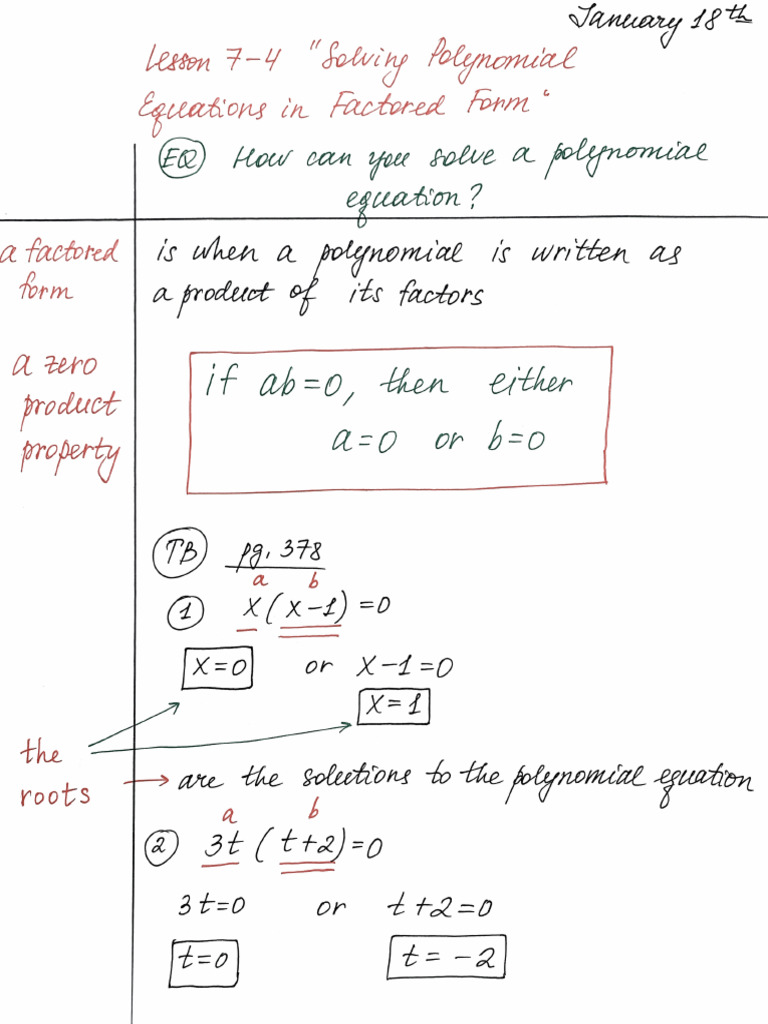 January 18th
Lesson 7-4 "Solving Polynomial
Equations in Factored Form"
EQ How can you solve a polynomial
equation?
a factored
form
is when a polynomial is written as
a product of its factors
a zero
product
property
if ab=0, then either
a=0 or b=0
TB pg. 378
a b
1 x(x-1)=0
x=0 or x-1=0
x=1
the
roots
are the solutions to the polynomial equation
a b
2 3t(t+2)=0
3t=0 or t+2=0
t=0 t=-2